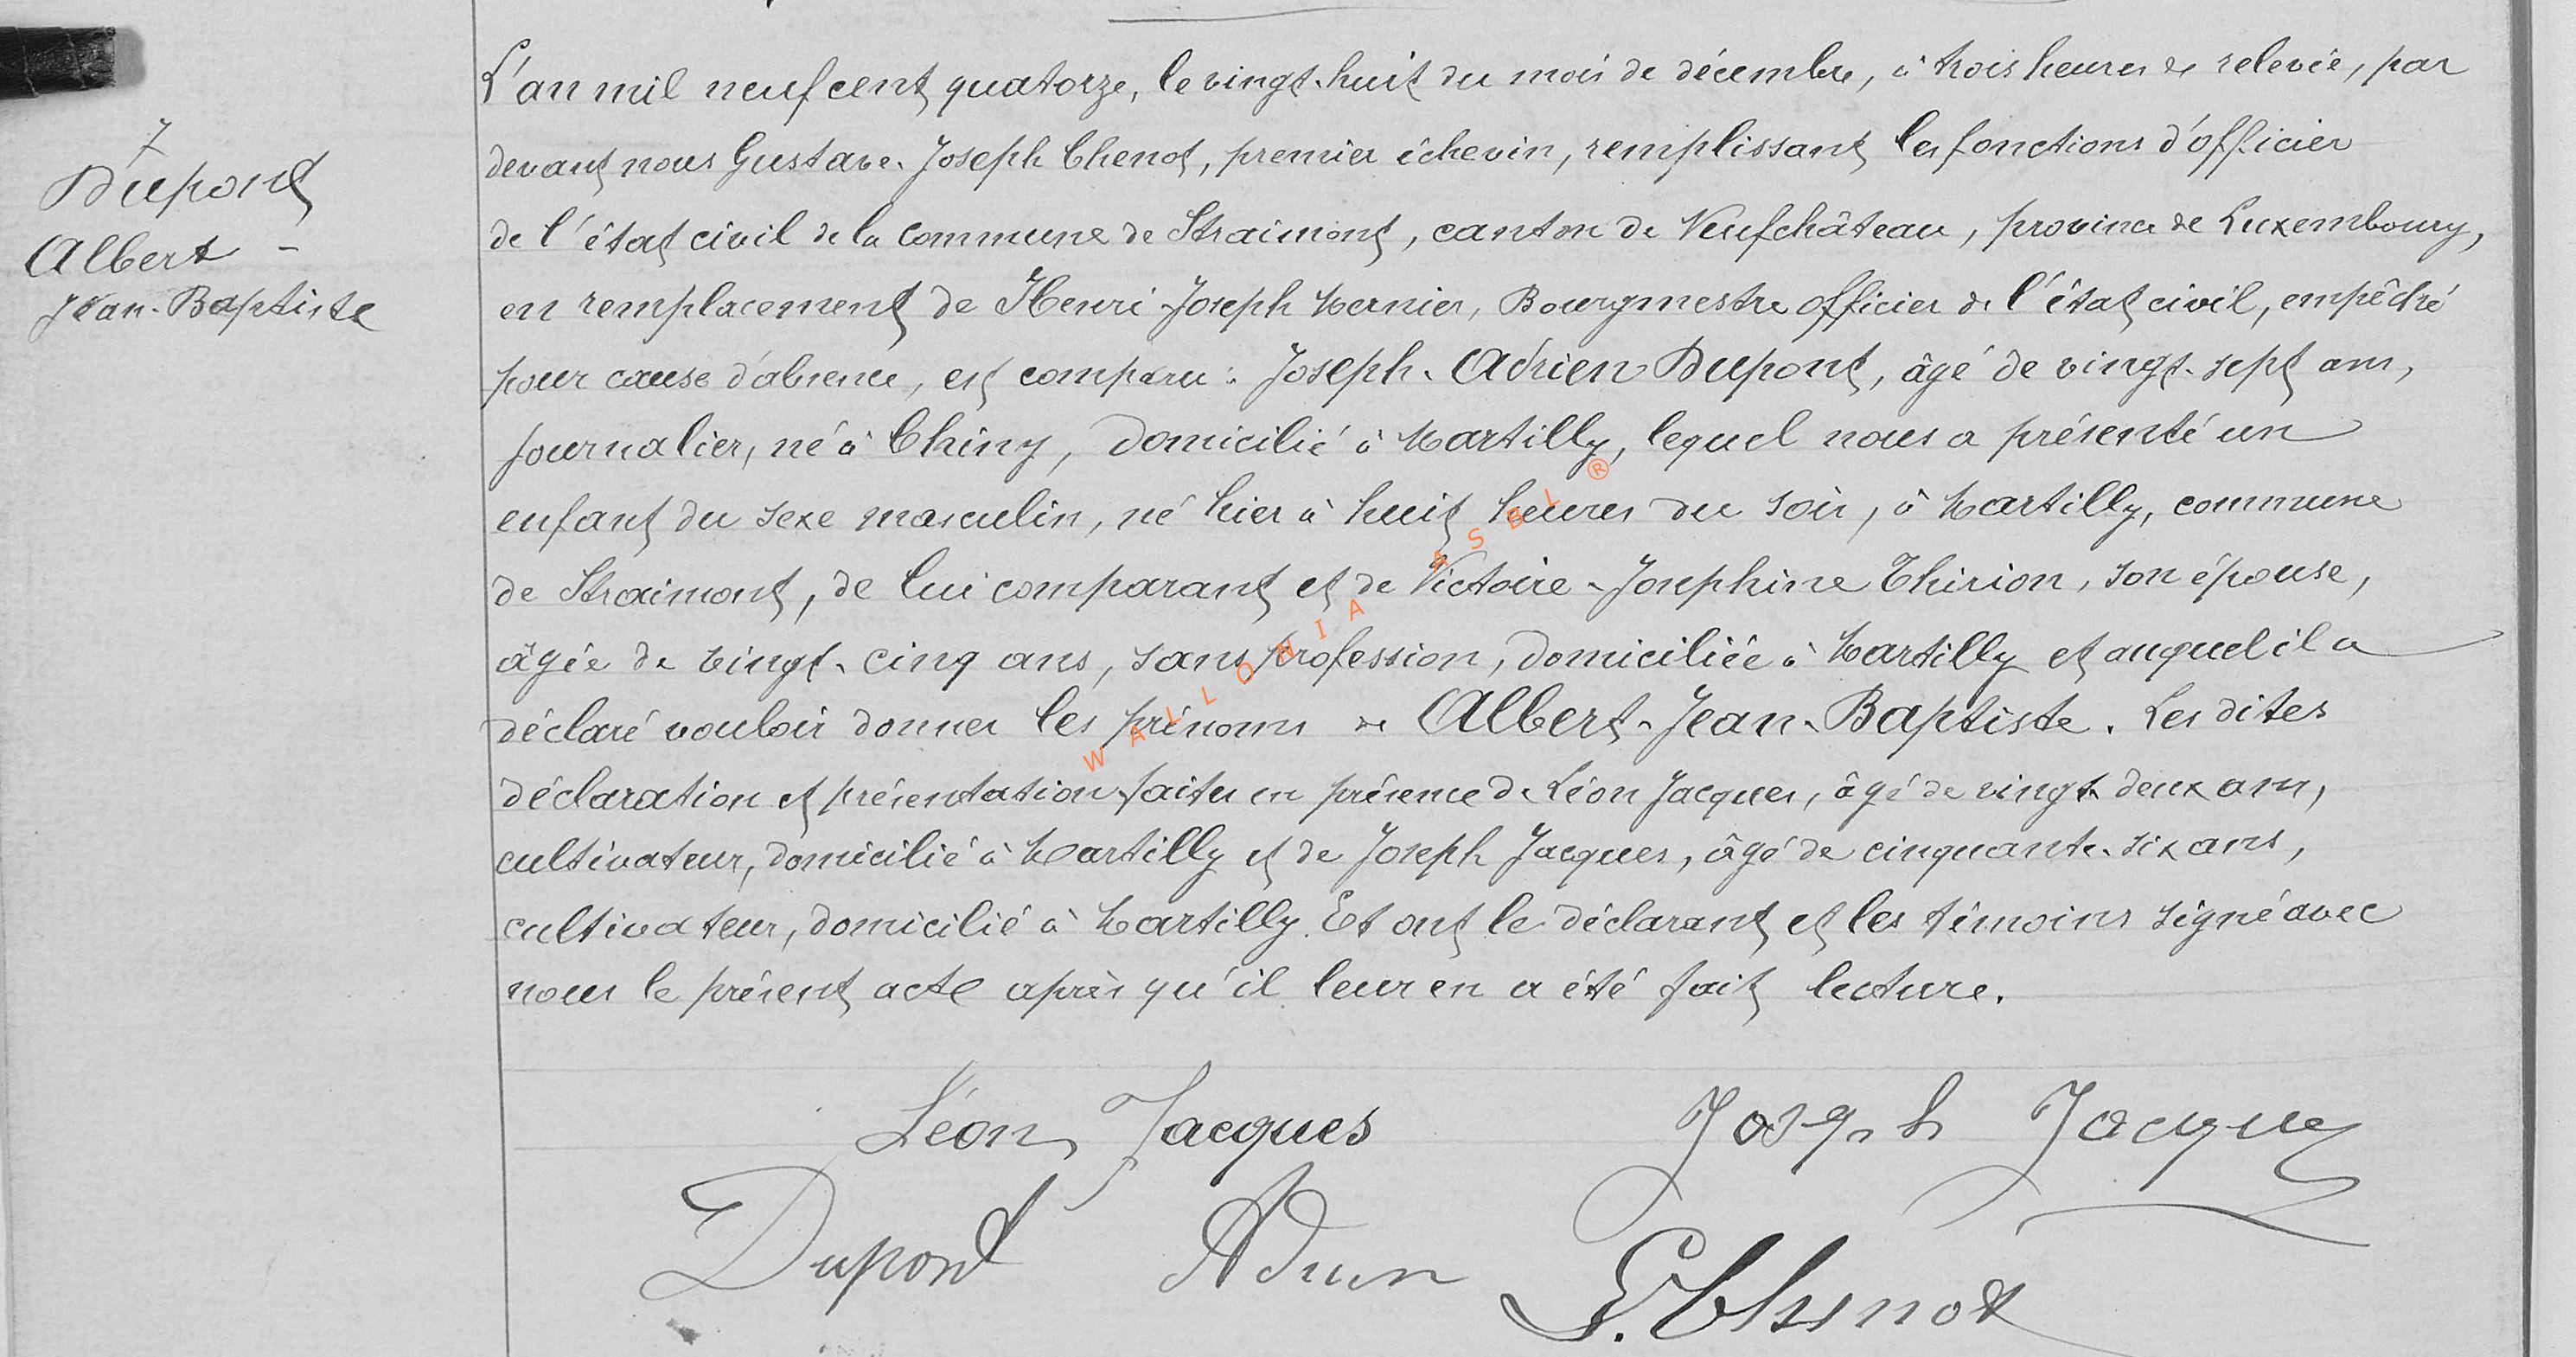 L'an mil neuf cent quatorze, le vingt-huit du mois de décembre, à trois heures de relevée, par
7
Dupont
Albert -
Jean-Baptiste
devant nous Gustave-Joseph Chenot, premier échevin, remplissant les fonctions d'officier
de l'état civil de la commune de Straimont, canton de Neufchâteau, province de Luxembourg,
en remplacement de Henri-Joseph Mernier, Bourgmestre officier de l'état civil, empêché
pour cause d'absence, est comparu : Joseph-Adrien Dupont, âgé de vingt-sept ans,
journalier, né à Chiny, domicilié à Martilly, lequel nous a présenté un
enfant du sexe masculin, né hier à huit heures du soir, à Martilly, commune
de Straimont, de lui comparant et de Victoire-Josephine Thirion, son épouse,
âgée de vingt-cinq ans, sans profession, domiciliée à Martilly et auquel il a
déclaré vouloir donner les prénoms de Albert-Jean-Baptiste. Les dites
déclaration et présentation faites en présence de Léon Jacques, âgé de vingt-deux ans,
cultivateur, domicilié à Martilly et de Joseph Jacques, âgé de cinquante-six ans,
cultivateur, domicilié à Martilly. Et ont le déclarant et les témoins signé avec
nous le présent acte après qu'il leur en a été fait lecture.
Léon Jacques Joseph Jacques
Dupont Adrien
G. Chenot
WALLONIA ASBL ®